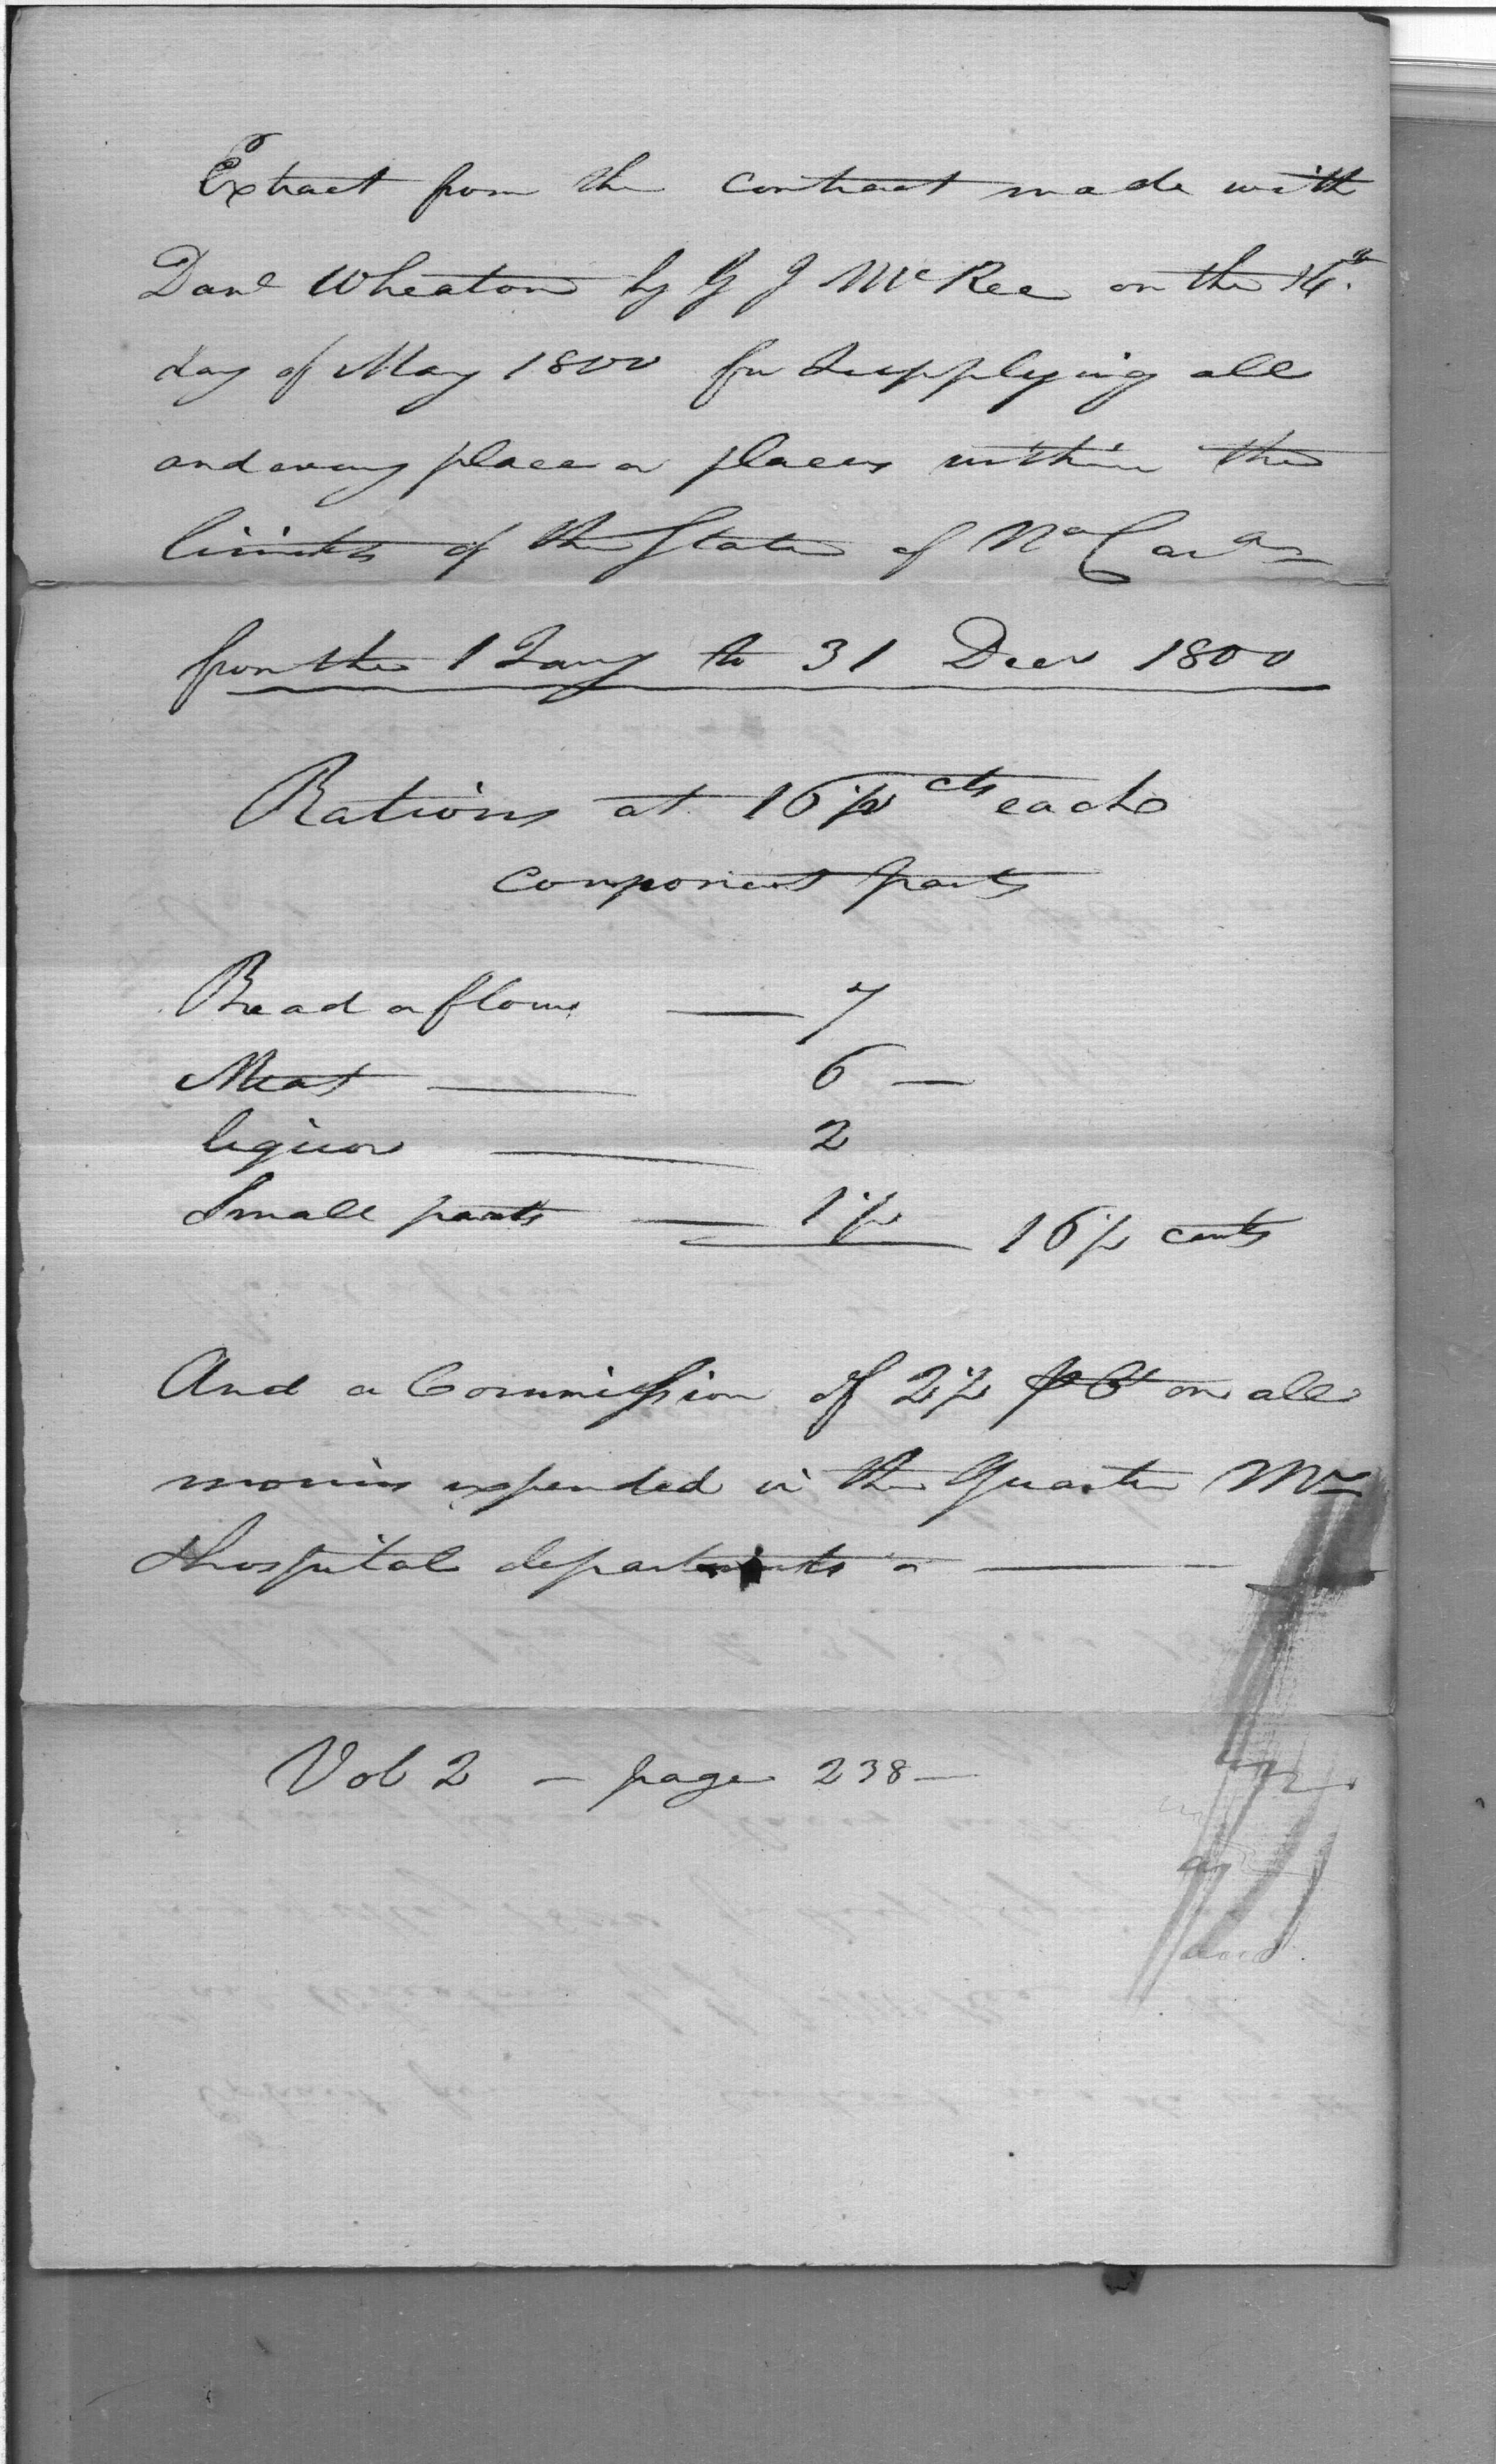 Extract from the contract made with
Danl Wheaton by G J McRee on the 14th
day of May 1800 for Supplying all
and every place or places within the
limits of the State of No Cara
from the 1 Jany to 31 Decr 1800
Rations at 16 1/2 cts each
component parts
Bread or flour — 7
Meat — 6 —
liquor — 2
Small parts — 1 1/2 16 1/2 cents
And a Commission of 2 1/2 P Ct on all
monies expended in the Quarter Mr
& hospital departments —
Vol 2 — page 238 —